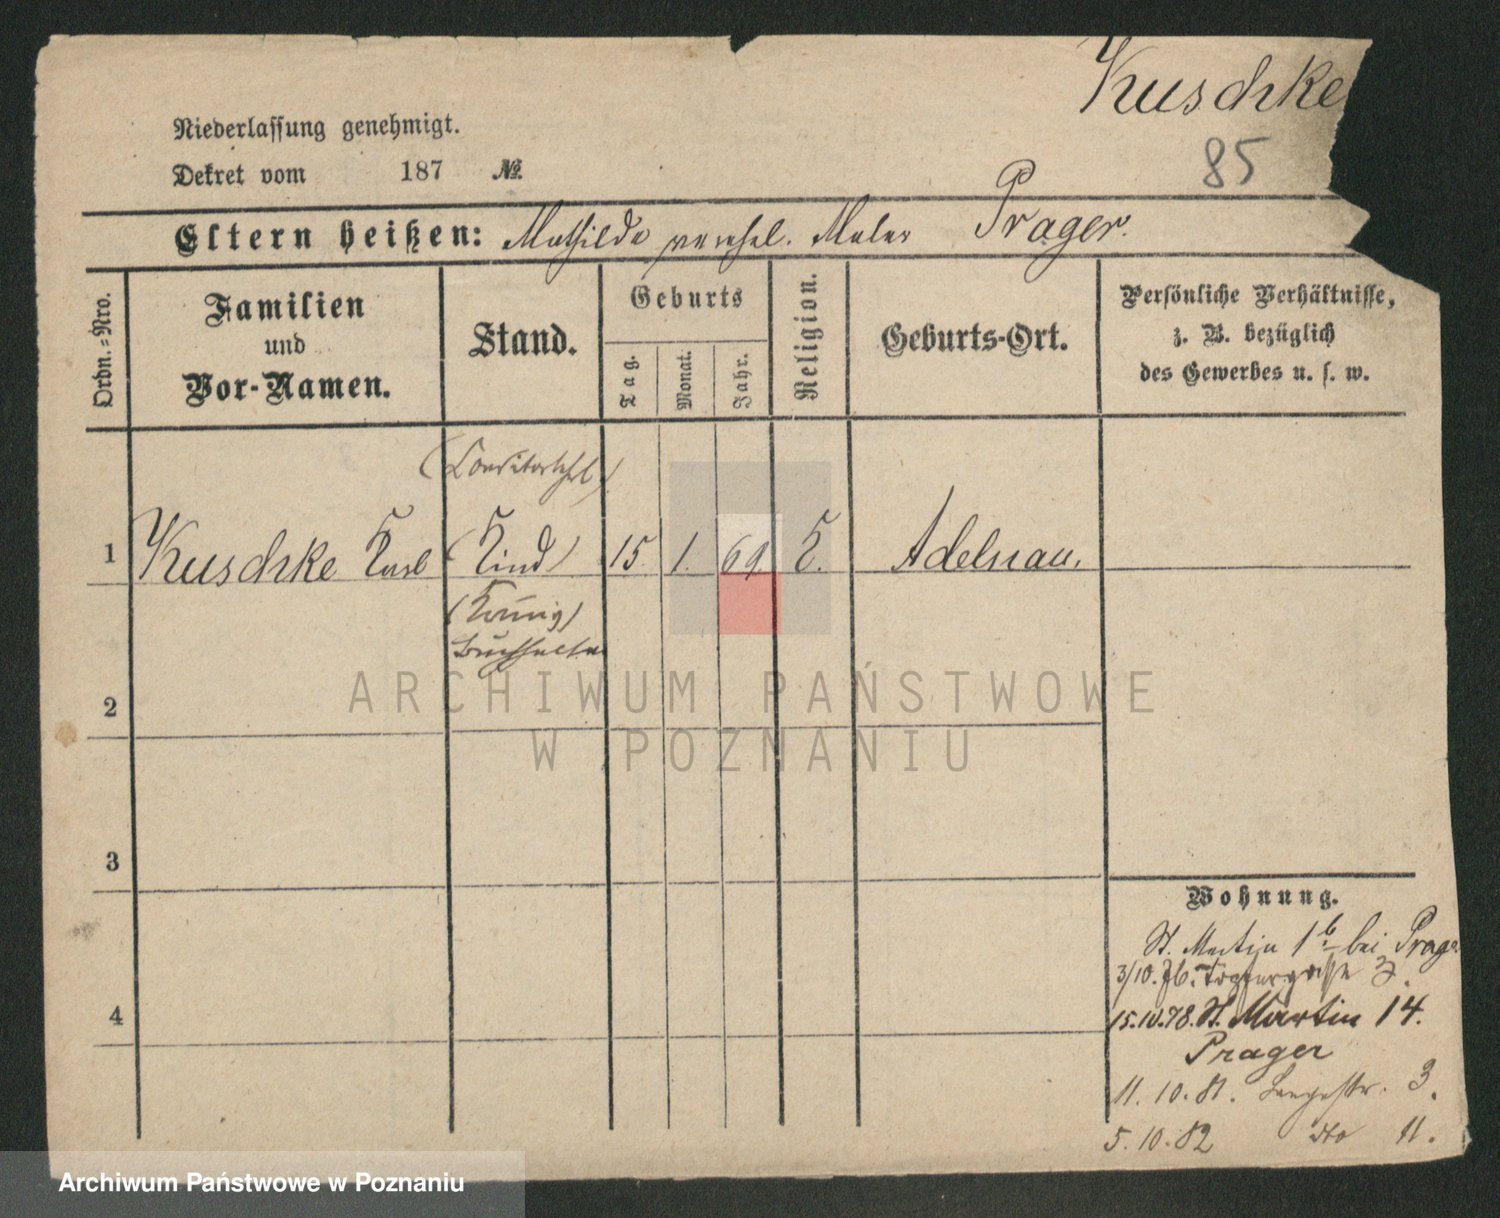 Kuschke
85
Niederlassung genehmigt.
Dekret vom 187 №.
Eltern heißen: Mathilde verehel. Maler Prager.
Ordn.-Nro.
Familien
und
Vor-Namen.
Stand.
Geburts
Tag.
Monat.
Jahr.
Religion.
Geburts-Ort.
Persönliche Verhältnisse,
z. B. bezüglich
des Gewerbes u. s. w.
(Conditorlehrl)
1 Kuschke Karl (Kind) 15. 1. 69. K. Adelnau.
Buchhalter
2
3
4
Wohnung.
St. Martin 1b bei Prager
3/10. 76. 3.
15.10.78. St. Martin 14.
Prager
11. 10. 81. Langestr. 3.
5. 10. 82 dto 11.
ARCHIWUM PAŃSTWOWE
W POZNANIU
Archiwum Państwowe w Poznaniu